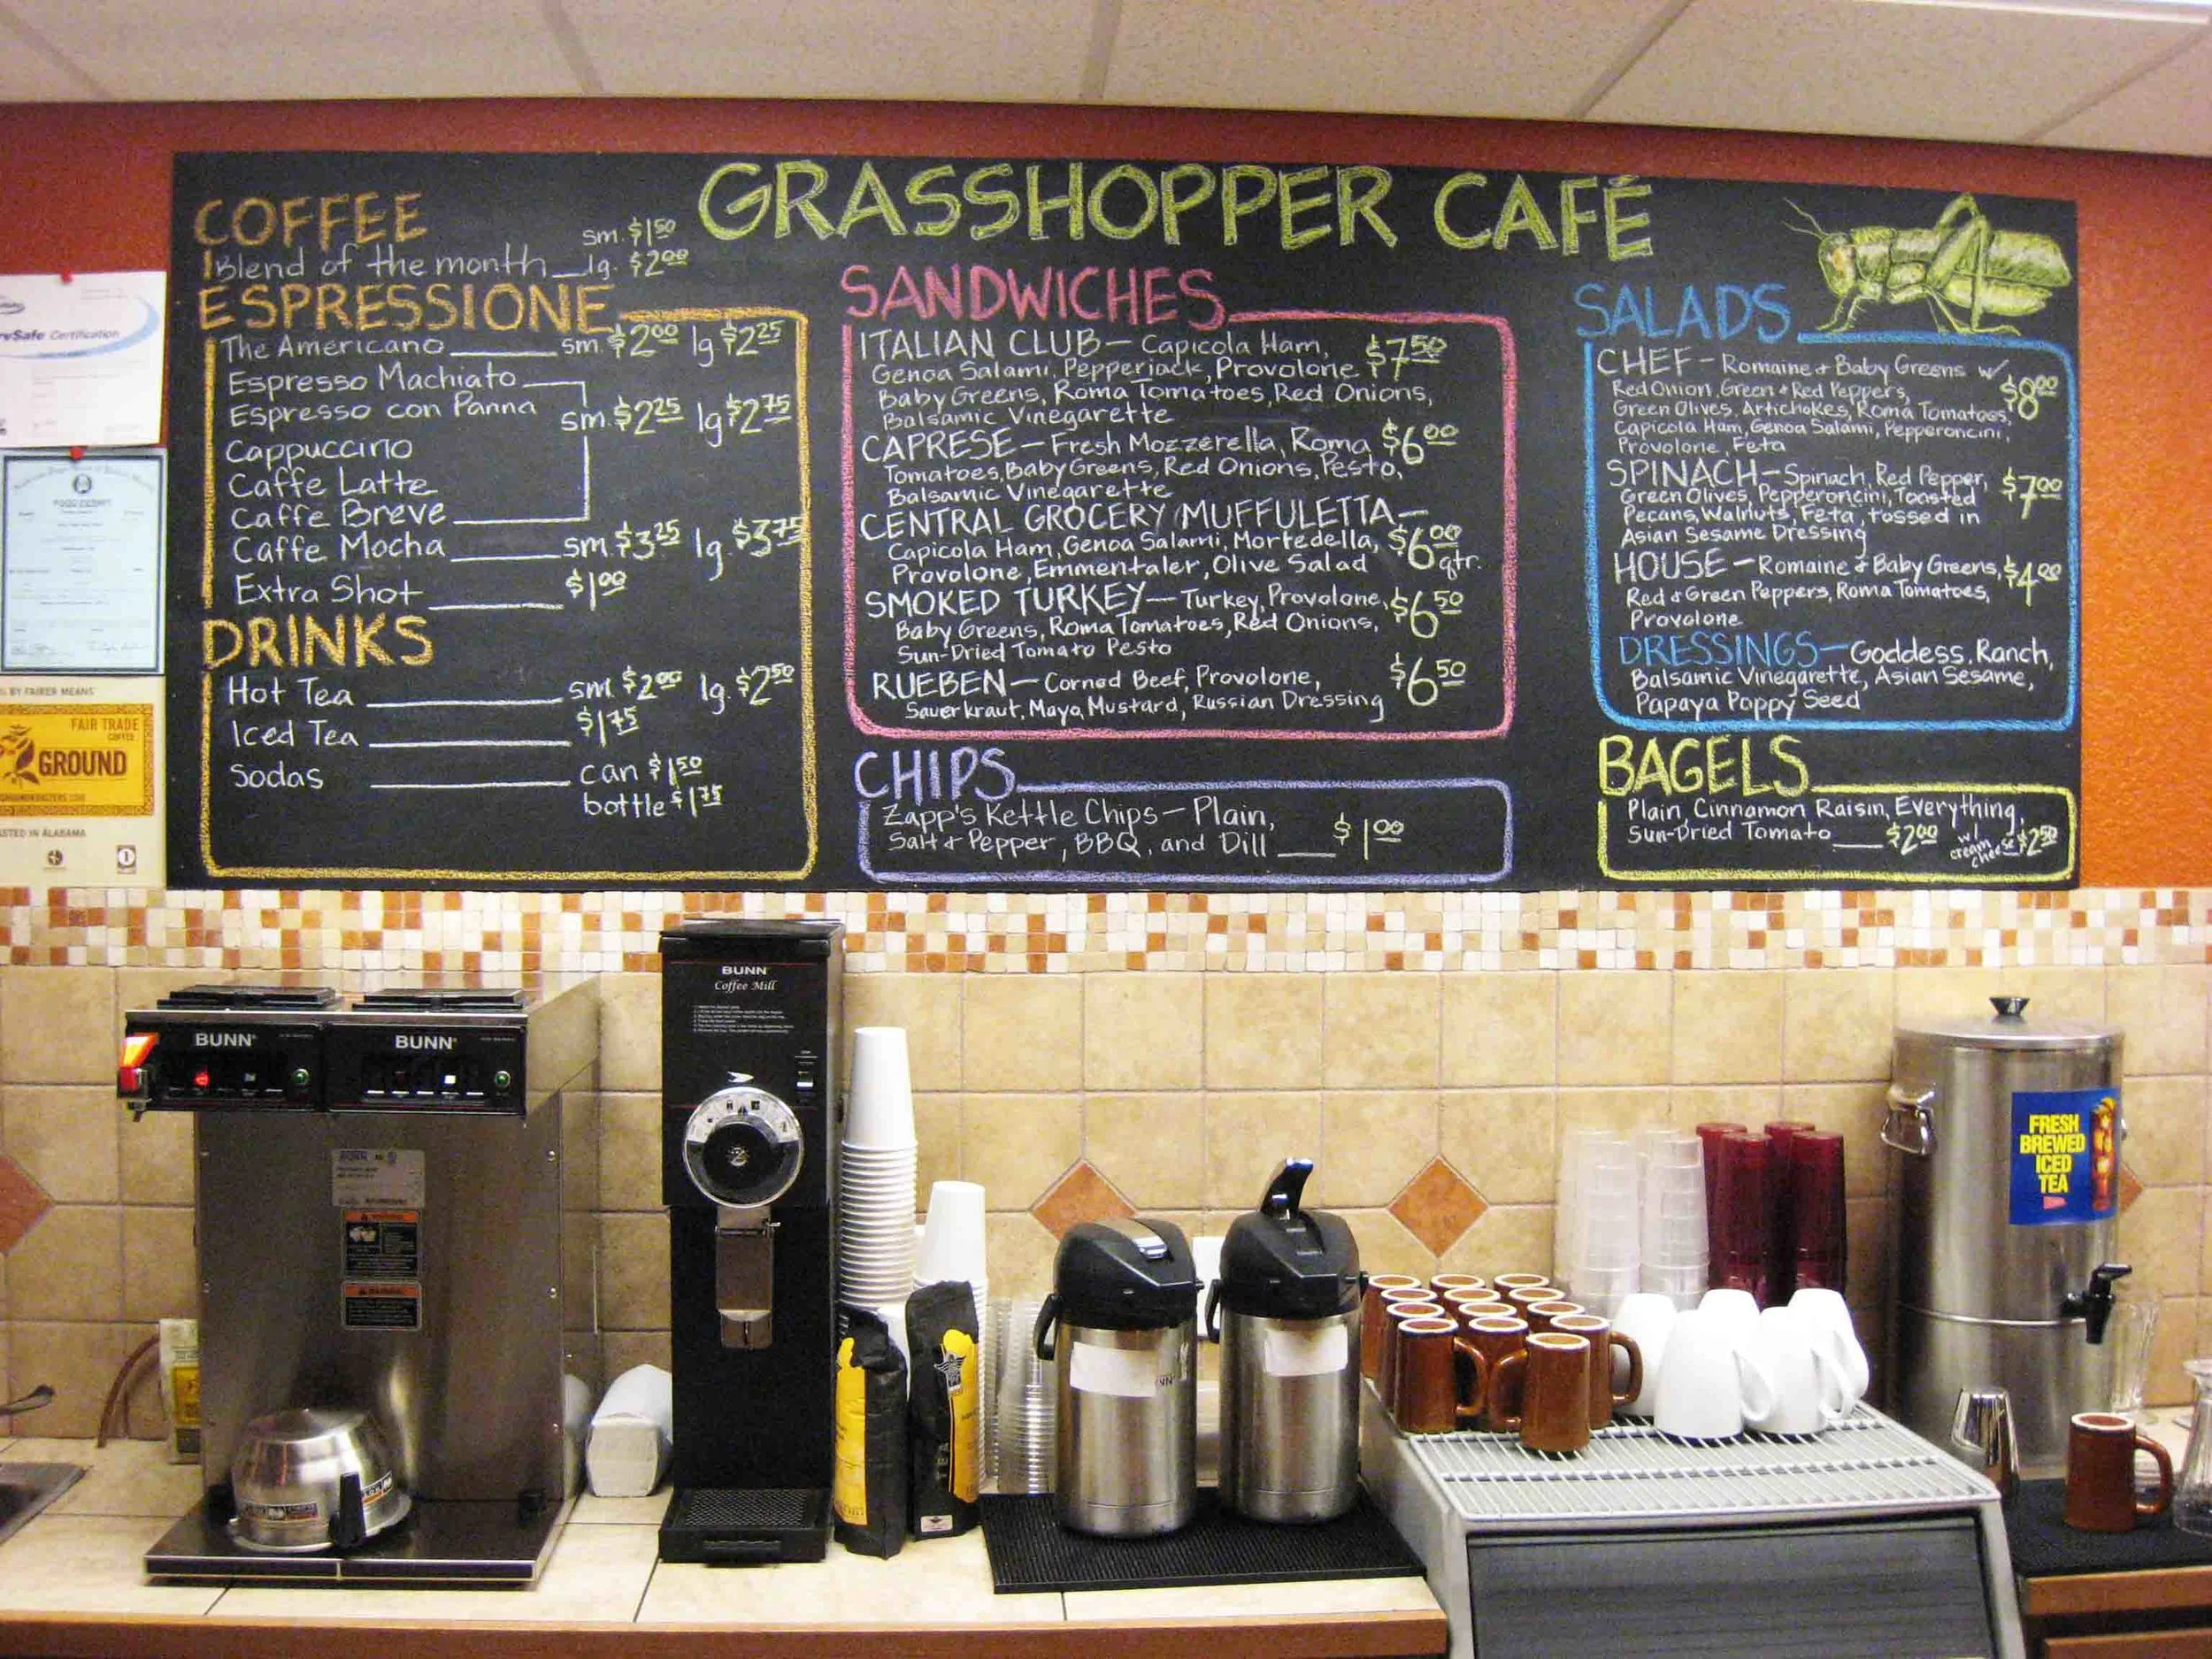 GRASSHOPPER CAFÉ
COFFEE
Blend of the month sm. $1.50
lg. $2.00
ESPRESSIONE
The Americano sm. $2.00 lg. $2.25
Espresso Machiato
Espresso con Panna sm. $2.25 lg $2.75
Cappuccino
Caffe Latte
Caffe Breve
Caffe Mocha sm. $3.25 lg. $3.75
Extra Shot $1.00
DRINKS
Hot Tea sm $2.00 lg. $2.50
Iced Tea $1.75
Sodas can $1.50
bottle $1.75
SANDWICHES
ITALIAN CLUB — Capicola Ham, $7.50
Genoa Salami, Pepperjack, Provolone
Baby Greens, Roma Tomatoes, Red Onions,
Balsamic Vinegarette
CAPRESE — Fresh Mozzerella, Roma $6.00
Tomatoes, Baby Greens, Red Onions, Pesto,
Balsamic Vinegarette
CENTRAL GROCERY MUFFULETTA —
Capicola Ham, Genoa Salami, Mortedella, $6.00
Provolone, Emmentaler, Olive Salad qtr.
SMOKED TURKEY — Turkey, Provolone, $6.50
Baby Greens, Roma Tomatoes, Red Onions,
Sun-Dried Tomato Pesto
RUEBEN — Corned Beef, Provolone, $6.50
Sauerkraut, Mayo, Mustard, Russian Dressing
CHIPS
Zapp's Kettle Chips — Plain,
Salt + Pepper, BBQ, and Dill $1.00
SALADS
CHEF — Romaine + Baby Greens w/
Red Onion, Green + Red Peppers, $8.00
Green Olives, Artichokes, Roma Tomatoes,
Capicola Ham, Genoa Salami, Pepperoncini,
Provolone, Feta
SPINACH — Spinach, Red Pepper, $7.00
Green Olives, Pepperoncini, Toasted
Pecans, Walnuts, Feta, tossed in
Asian Sesame Dressing
HOUSE — Romaine + Baby Greens, $4.00
Red + Green Peppers, Roma Tomatoes,
Provolone
DRESSINGS — Goddess, Ranch,
Balsamic Vinegarette, Asian Sesame,
Papaya Poppy Seed
BAGELS
Plain, Cinnamon Raisin, Everything,
Sun-Dried Tomato $2.00 w/ cream cheese $2.50
Certification
BY FAIRER MEANS
FAIR TRADE
COFFEE
GROUND
ASTED IN ALABAMA
BUNN
Coffee Mill
BUNN
BUNN
FRESH
BREWED
ICED
TEA